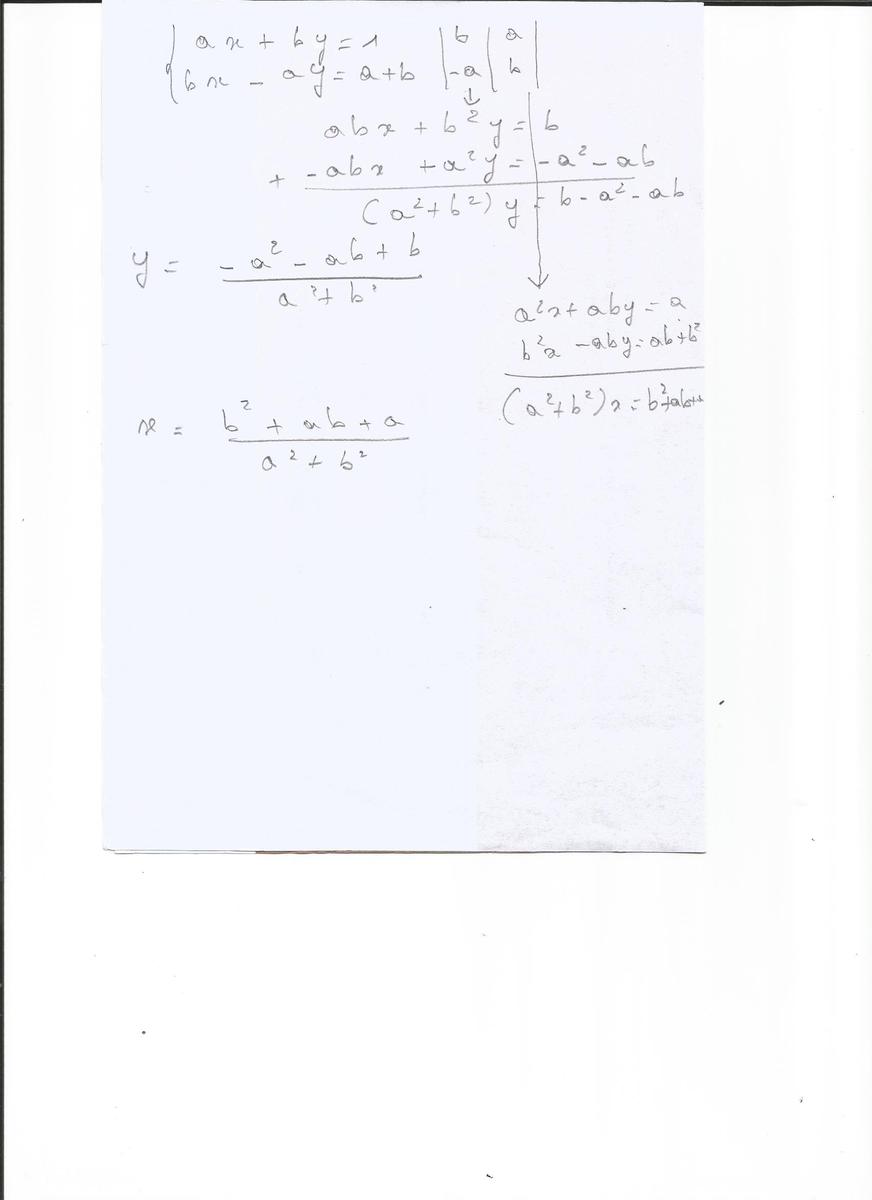 ax + by = 1 | b | a |
bx - ay = a+b | -a | b |
abx + b²y = b
+ -abx + a²y = -a² - ab
(a²+b²) y = b - a² - ab
y = -a² - ab + b / a² + b²
a²x + aby = a
b²x - aby = ab+b²
(a²+b²)x = b²+ab+
x = b² + ab + a / a² + b²